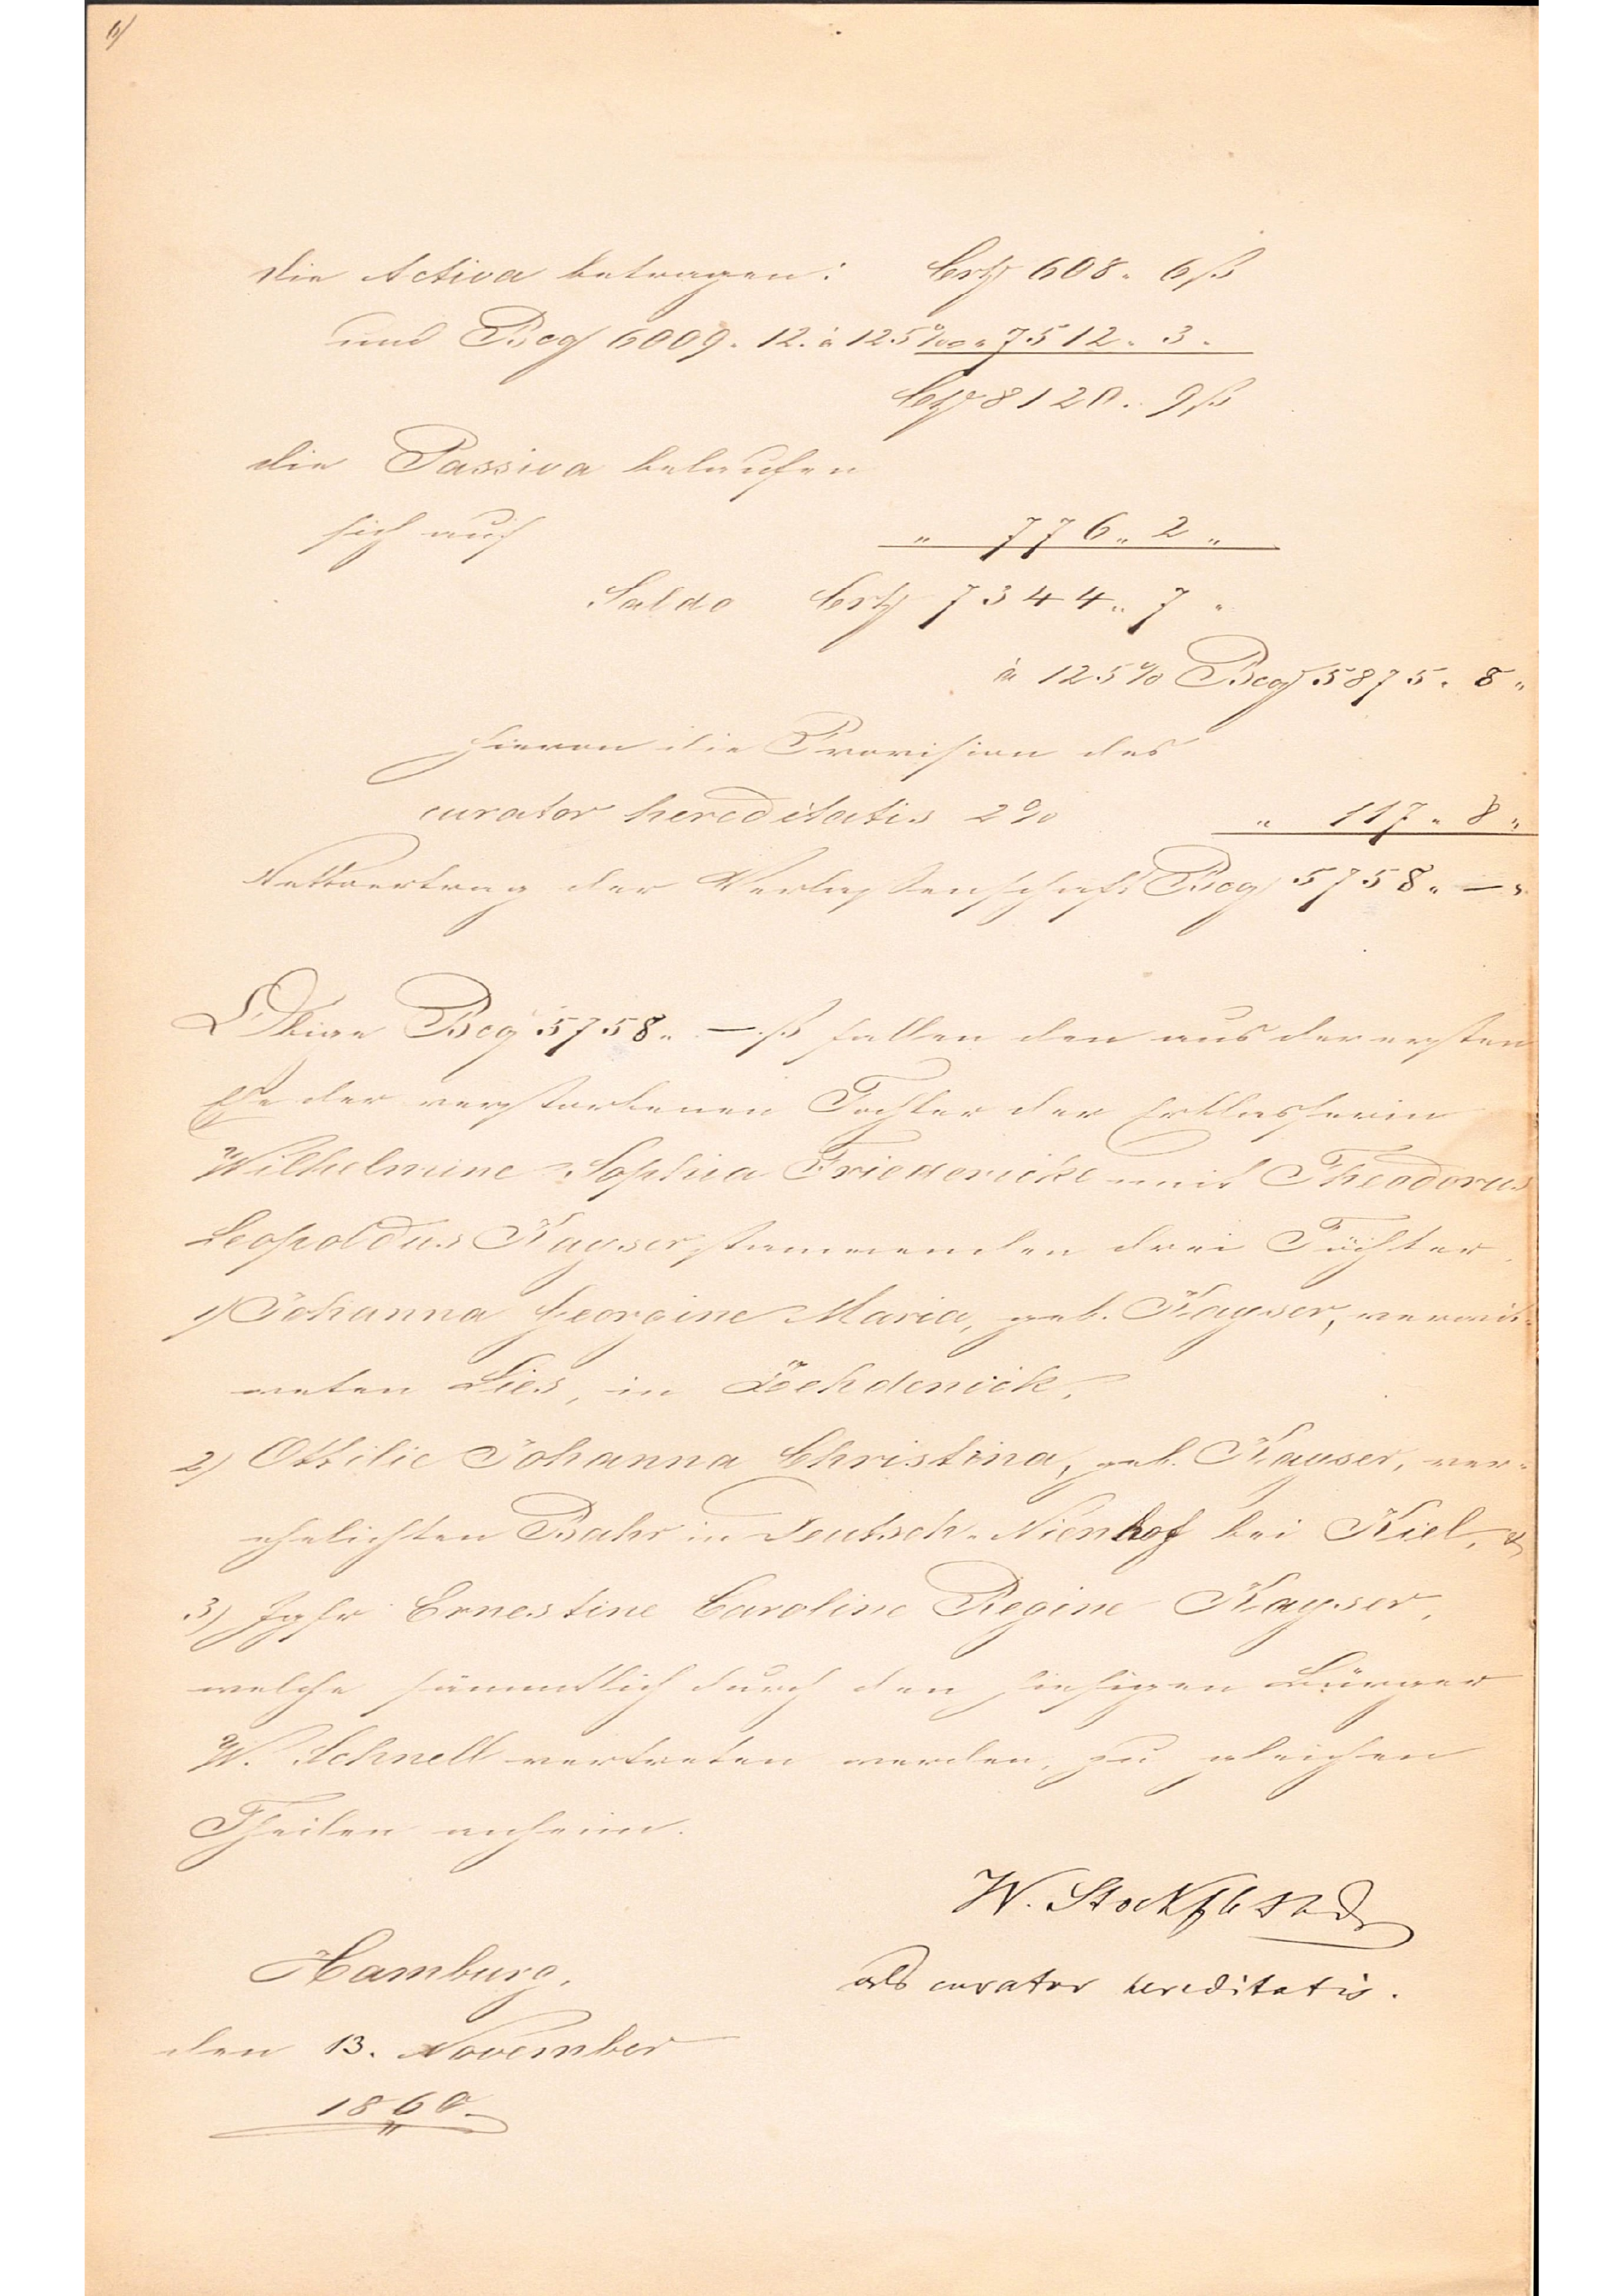 6/
Die Activa betragen: Crt 608. 6 ß
und Bco 6009. 12. à 125% " 7512. 3.
Crt 8120. 9 ß
die Passiva belaufen
sich auf " 776 " 2 "
Saldo Crt 7344 " 7 "
à 125% Bco 5875. 8 "
hievon die Provision des
curator hereditatis 2% " 117 " 8 "
Nettoertrag der Verlassenschaft Bco 5758 " — "
Obige Bco 5758 " — ß fallen den aus der ersten
Ehe der verstorbenen Tochter der Erblasserin
Wilhelmine Sophia Friedericke mit Theodorus
Leopoldus Kayser stammenden drei Töchter
1) Johanna Georgine Maria, geb. Kayser, verwit-
weten Lies, in Zehdenick,
2) Ottilie Johanna Christina, geb. Kayser, ver-
ehelichten Bahr in Deutsch-Nienhof bei Kiel, &
3) Jgfr Ernestine Caroline Regine Kayser,
welche sämmtlich durch den hiesigen Bürger
W. Schnell vertreten werden, zu gleichen
Theilen anheim.
W.
als curator hereditatis.
Hamburg,
den 13. November
1860.